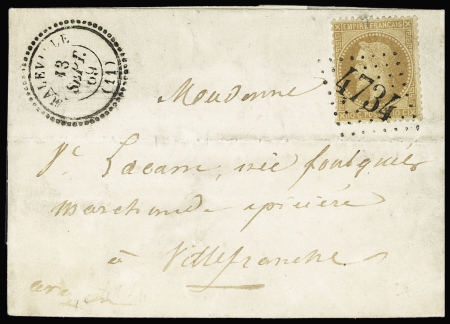 MALEVILLE (11)
13
SEPT.
69
EMPIRE FRANÇAIS
4734
Madame
Vᵉ Lacam, née foulquier
marchande epicière
à Villefranche